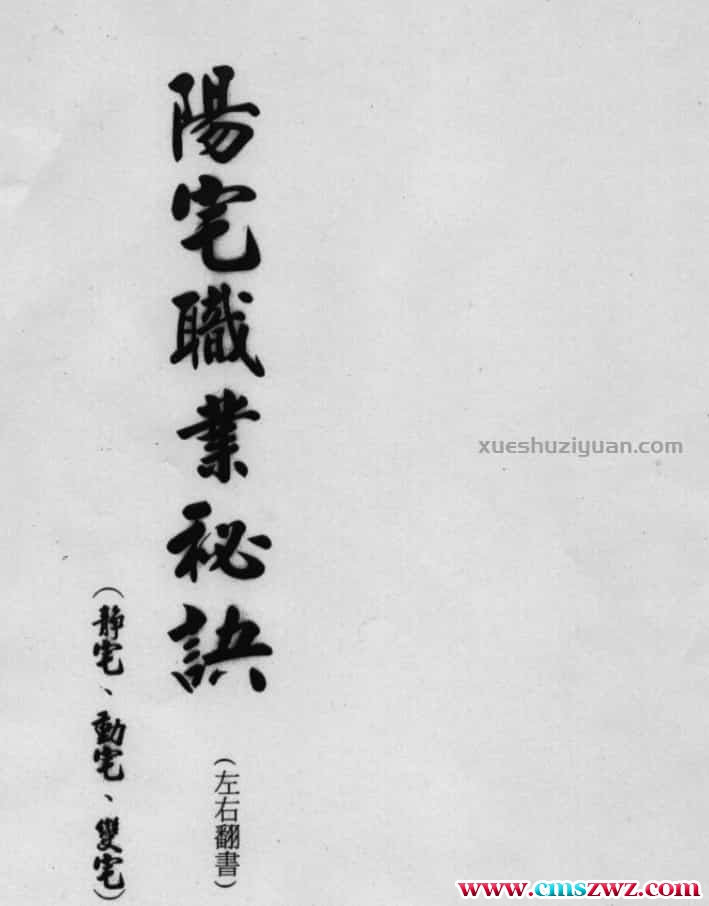 陽宅職業秘訣
(左右翻書)
(靜宅、動宅、變宅)
xueshuziyuan.com
www.cmszwz.com